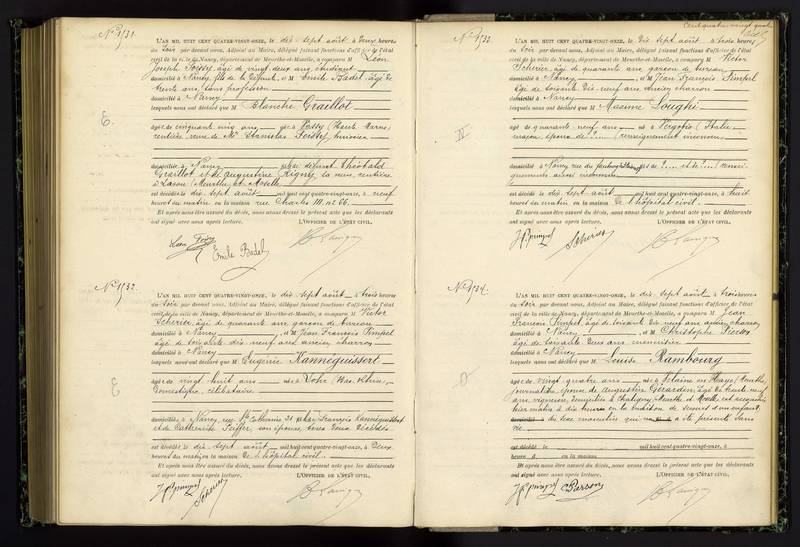 N° 1731.
L'AN MIL HUIT CENT QUATRE-VINGT-ONZE, le dix sept août à deux heures
du soir par devant nous, Adjoint au Maire, délégué faisant fonctions d'officier de l'état
civil de la ville de Nancy, département de Meurthe-et-Moselle, a comparu M Léon
Joseph âgé de vingt deux ans, étudiant
domicilié à Nancy, fils de la défunte, et M Emile Badel âgé de
trente ans, sans profession
domicilié à Nancy
lesquels nous ont déclaré que M Blanche Graillot
E.
âgée de cinquante cinq ans née à Passy (Haute Marne)
rentière, veuve de Mr Stanislas huissier
domiciliée à Nancy fille de défunt Théobald
Graillot et de Augustine Rigny sa veuve, rentière
à (Meurthe et Moselle)
est décédée le dix sept août mil huit cent quatre-vingt-onze, à neuf
heures du matin en la maison rue Charles III n° 66.
Et après nous être assuré du décès, nous avons dressé le présent acte que les déclarants
ont signé avec nous après lecture. L'OFFICIER DE L'ÉTAT CIVIL,
Emile Badel
N° 1732.
L'AN MIL HUIT CENT QUATRE-VINGT-ONZE, le dix sept août à trois heures
du soir par devant nous, Adjoint au Maire, délégué faisant fonctions d'officier de l'état
civil de la ville de Nancy, département de Meurthe-et-Moselle, a comparu M Victor
Scherier, âgé de quarante ans, garçon de bureau
domicilié à Nancy, et M Jean François Pimpel
âgé de soixante dix neuf ans ancien charron
domicilié à Nancy
lesquels nous ont déclaré que M Eugénie Hanneguissert
E
âgée de vingt huit ans née à (Bas Rhin)
domestique, célibataire
domiciliée à Nancy rue 31 fille de François Hanneguissert
et de Catherine Peiffer, son épouse, tous deux décédés
est décédée le dix sept août mil huit cent quatre-vingt-onze, à deux
heures du matin en la maison de l'hôpital civil.
Et après nous être assuré du décès, nous avons dressé le présent acte que les déclarants
ont signé avec nous après lecture. L'OFFICIER DE L'ÉTAT CIVIL,
Cent quatre vingt
N° 1733.
L'AN MIL HUIT CENT QUATRE-VINGT-ONZE, le dix sept août à trois heures
du soir par devant nous, Adjoint au Maire, délégué faisant fonctions d'officier de l'état
civil de la ville de Nancy, département de Meurthe-et-Moselle, a comparu M Victor
Scherier, âgé de quarante ans, garçon de bureau
domicilié à Nancy, et M Jean François Pimpel
âgé de soixante dix neuf ans, ancien charron
domicilié à Nancy
lesquels nous ont déclaré que M Maxime Longhi
âgé de quarante neuf ans né à (Italie)
maçon, époux de ?... (renseignement inconnu)
domicilié à Nancy rue du fils de ?... et de ?... (rensei-
gnements aussi inconnus)
est décédé le dix sept août mil huit cent quatre-vingt-onze, à huit
heures du matin en la maison de l'hôpital civil.
Et après nous être assuré du décès, nous avons dressé le présent acte que les déclarants
ont signé avec nous après lecture. L'OFFICIER DE L'ÉTAT CIVIL,
N° 1734.
L'AN MIL HUIT CENT QUATRE-VINGT-ONZE, le dix sept août à trois heures
du soir par devant nous, Adjoint au Maire, délégué faisant fonctions d'officier de l'état
civil de la ville de Nancy, département de Meurthe-et-Moselle, a comparu M Jean
François Pimpel, âgé de soixante dix neuf ans ancien charron
domicilié à Nancy, et M Christophe
âgé de soixante deux ans menuisier
domicilié à Nancy
lesquels nous ont déclaré que M Louise Rambourg
âgée de vingt quatre ans née à en Haye (Meurthe)
journalière, épouse de Augustin Gérardin, âgé de trente neuf
ans, vigneron, domiciliés à Chaligny (Meurthe et Moselle) est accouchée
hier matin à dix heures en la maison de secours d'un enfant
du sexe masculin qui nous a été présenté sans
vie.
est décédé le mil huit cent quatre-vingt-onze, à
heures d en la maison
Et après nous être assuré du décès, nous avons dressé le présent acte que les déclarants
ont signé avec nous après lecture. L'OFFICIER DE L'ÉTAT CIVIL,